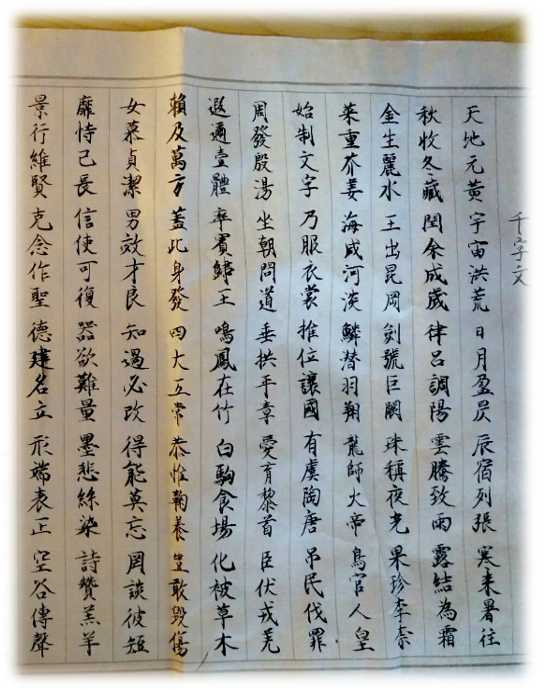 千字文
天地元黃宇宙洪荒日月盈昃辰宿列張寒来暑往
秋收冬藏閏余成歲律呂調陽雲騰致雨露結為霜
金生麗水玉出昆岡劍號巨闕珠稱夜光果珍李柰
菜重芥姜海咸河淡鱗潜羽翔龍師火帝鳥官人皇
始制文字乃服衣裳推位讓國有虞陶唐吊民伐罪
周發殷湯坐朝問道垂拱平章愛育黎首臣伏戎羌
遐邇壹體率賓歸王鳴鳳在竹白駒食場化被草木
賴及萬方蓋此身發四大五常恭惟鞠養豈敢毀傷
女慕貞潔男效才良知過必改得能莫忘罔談彼短
靡恃己長信使可復器欲難量墨悲絲染詩贊羔羊
景行維賢克念作聖德建名立形端表正空谷傳聲